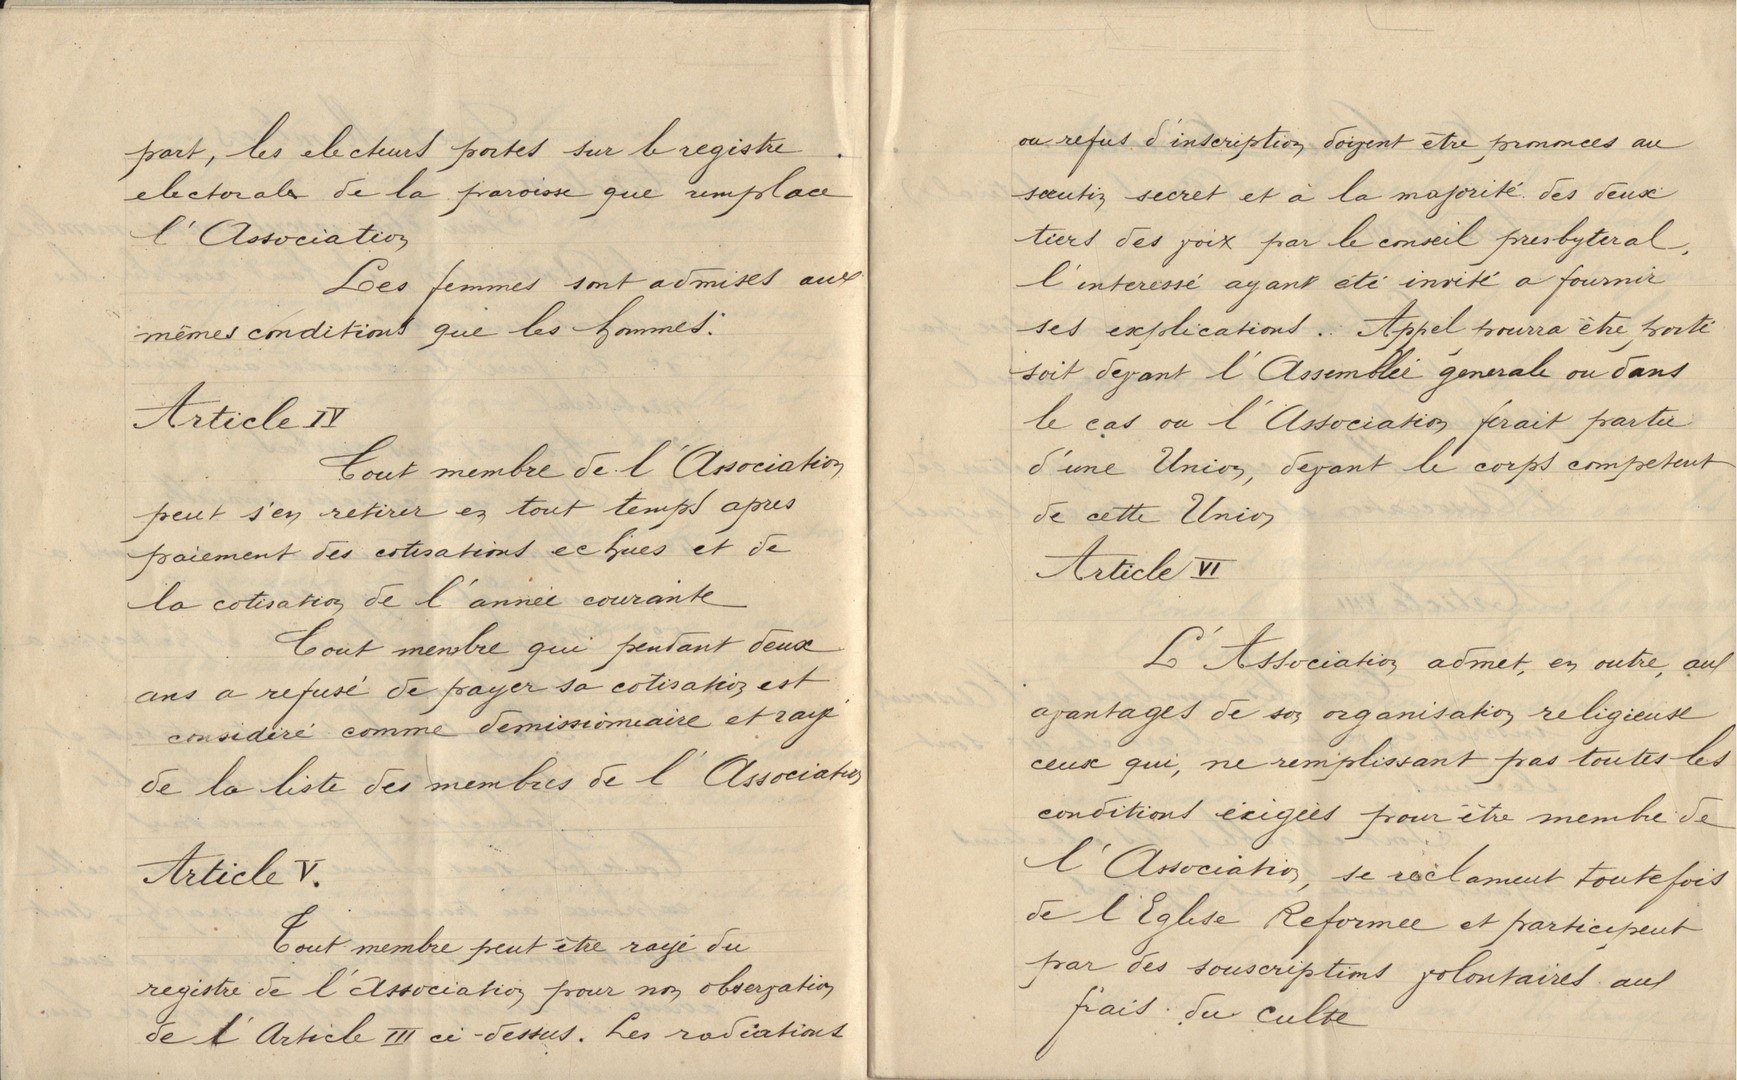 part, les electeurs portes sur le registre
electorale de la paroisse que remplace
l'Association
Les femmes sont admises aux
mêmes conditions que les hommes.
Article IV
Tout membre de l'Association
peut s'en retirer en tout temps apres
paiement des cotisations echues et de
la cotisation de l'année courante
Tout membre qui pendant deux
ans a refusé de payer sa cotisation est
consideré comme demissionnaire et rayé
de la liste des membres de l'Association
Article V.
Tout membre peut être rayé du
registre de l'Association pour non observation
de l'Article III ci-dessus. Les radiations
ou refus d'inscription doivent etre prononces au
scrutin secret et à la majorité des deux
tiers des voix par le conseil presbyteral,
l'interessé ayant été invité a fournir
ses explications.. Appel pourra être porté
soit devant l'Assemblée generale ou dans
le cas ou l'Association ferait partie
d'une Union, devant le corps competent
de cette Union
Article VI
L'Association admet, en outre, aux
avantages de son organisation religieuse
ceux qui, ne remplissant pas toutes les
conditions éxigées pour être membre de
l'Association, se réclament toutefois
de l'Eglise Reformee et participent
par des souscriptions volontaires aux
frais du culte